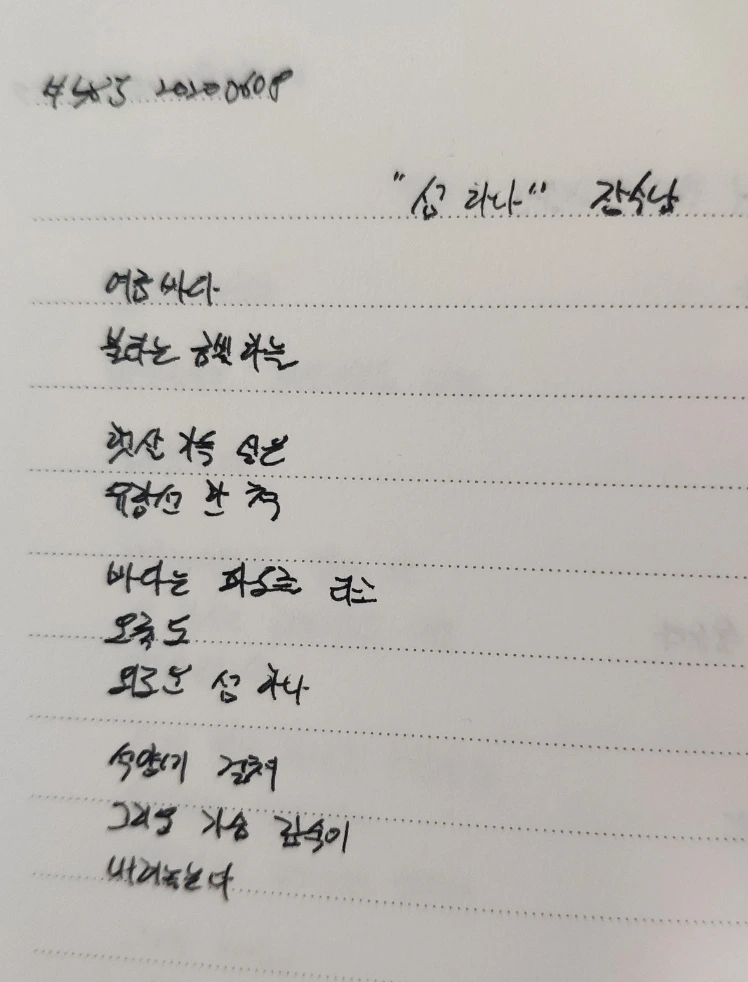 #483 20200608
"섬 하나" 장수남
여름바다
불타는 햇빛 하늘
햇살 가득 실은
유람선 한 척
바다는 파도를 타고
오륙도
외로운 섬 하나
석양이 걸쳐
그리움 가슴 깊숙이
내려놓는다